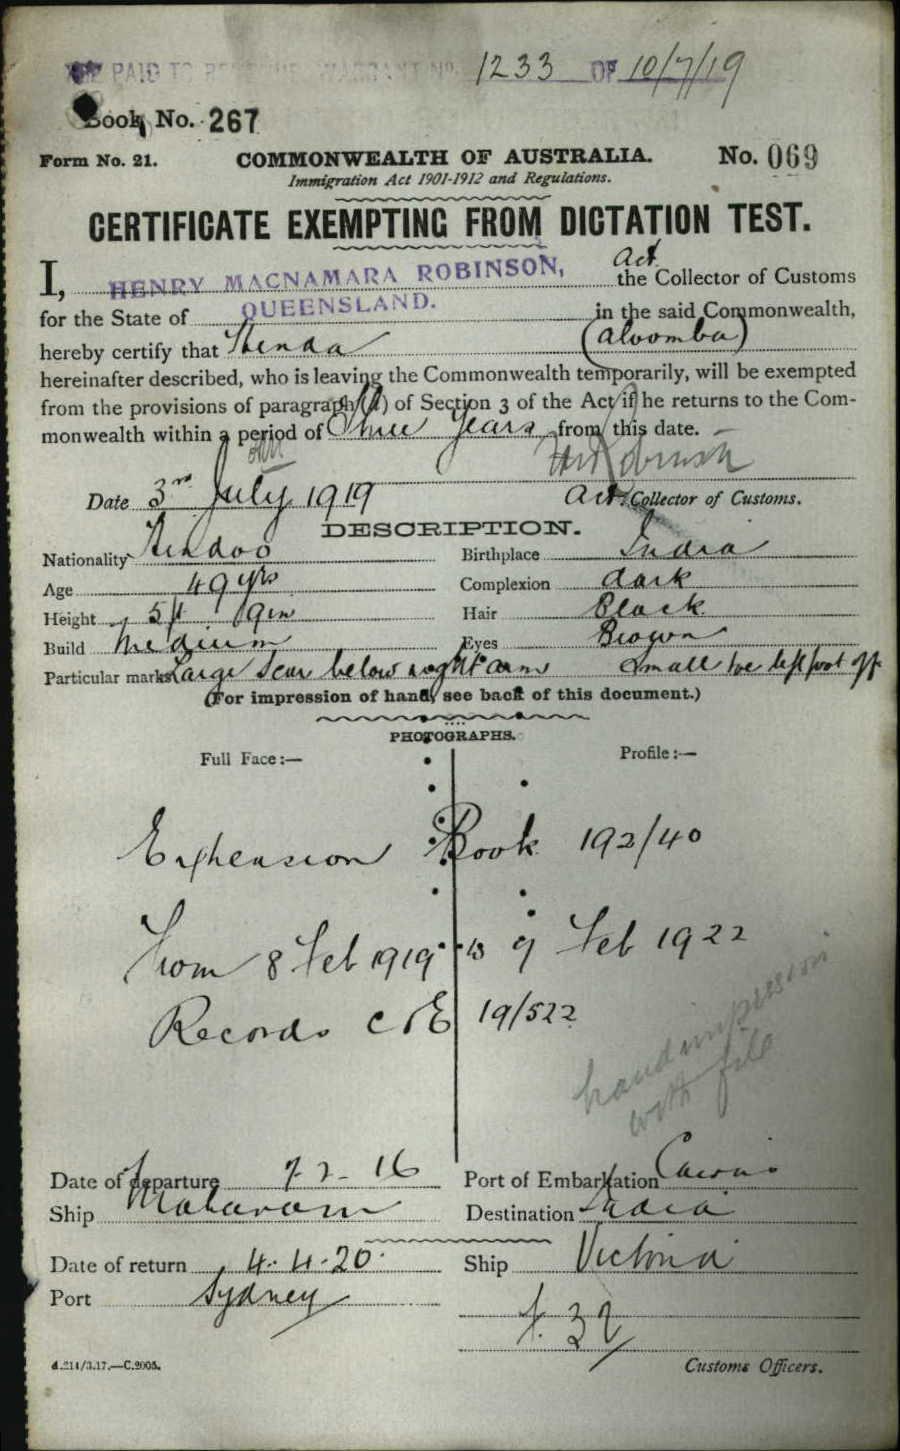 PAID TO REVENUE WARRANT No 1233 OF 10/7/19
Book No. 267
Form No. 21. COMMONWEALTH OF AUSTRALIA. No. 069
Immigration Act 1901-1912 and Regulations.
CERTIFICATE EXEMPTING FROM DICTATION TEST.
Act.
I, HENRY MACNAMARA ROBINSON, the Collector of Customs
for the State of QUEENSLAND. in the said Commonwealth,
hereby certify that (Aloomba)
hereinafter described, who is leaving the Commonwealth temporarily, will be exempted
from the provisions of paragraph (a) of Section 3 of the Act if he returns to the Com-
monwealth within a period of Three Years from this date.
Date 3rd July 1919 Act. Collector of Customs.
DESCRIPTION.
Nationality Hindoo Birthplace India
Age 49 yrs Complexion dark
Height 5 ft 9 in Hair Black
Build Medium Eyes Brown
Particular marks Large Scar below right arm Small toe left foot off
(For impression of hand, see back of this document.)
PHOTOGRAPHS.
Full Face:— Profile:—
Extension Book 192/40
From 8 Feb 1919 to 7 Feb 1922
Records C & E 19/522
hand impression
with file
Date of departure 7-2-16 Port of Embarkation Cairns
Ship Mataram Destination India
Date of return 4.4.20. Ship Victoria
Port Sydney
f. 32
d.214/3.17.—C.2005. Customs Officers.